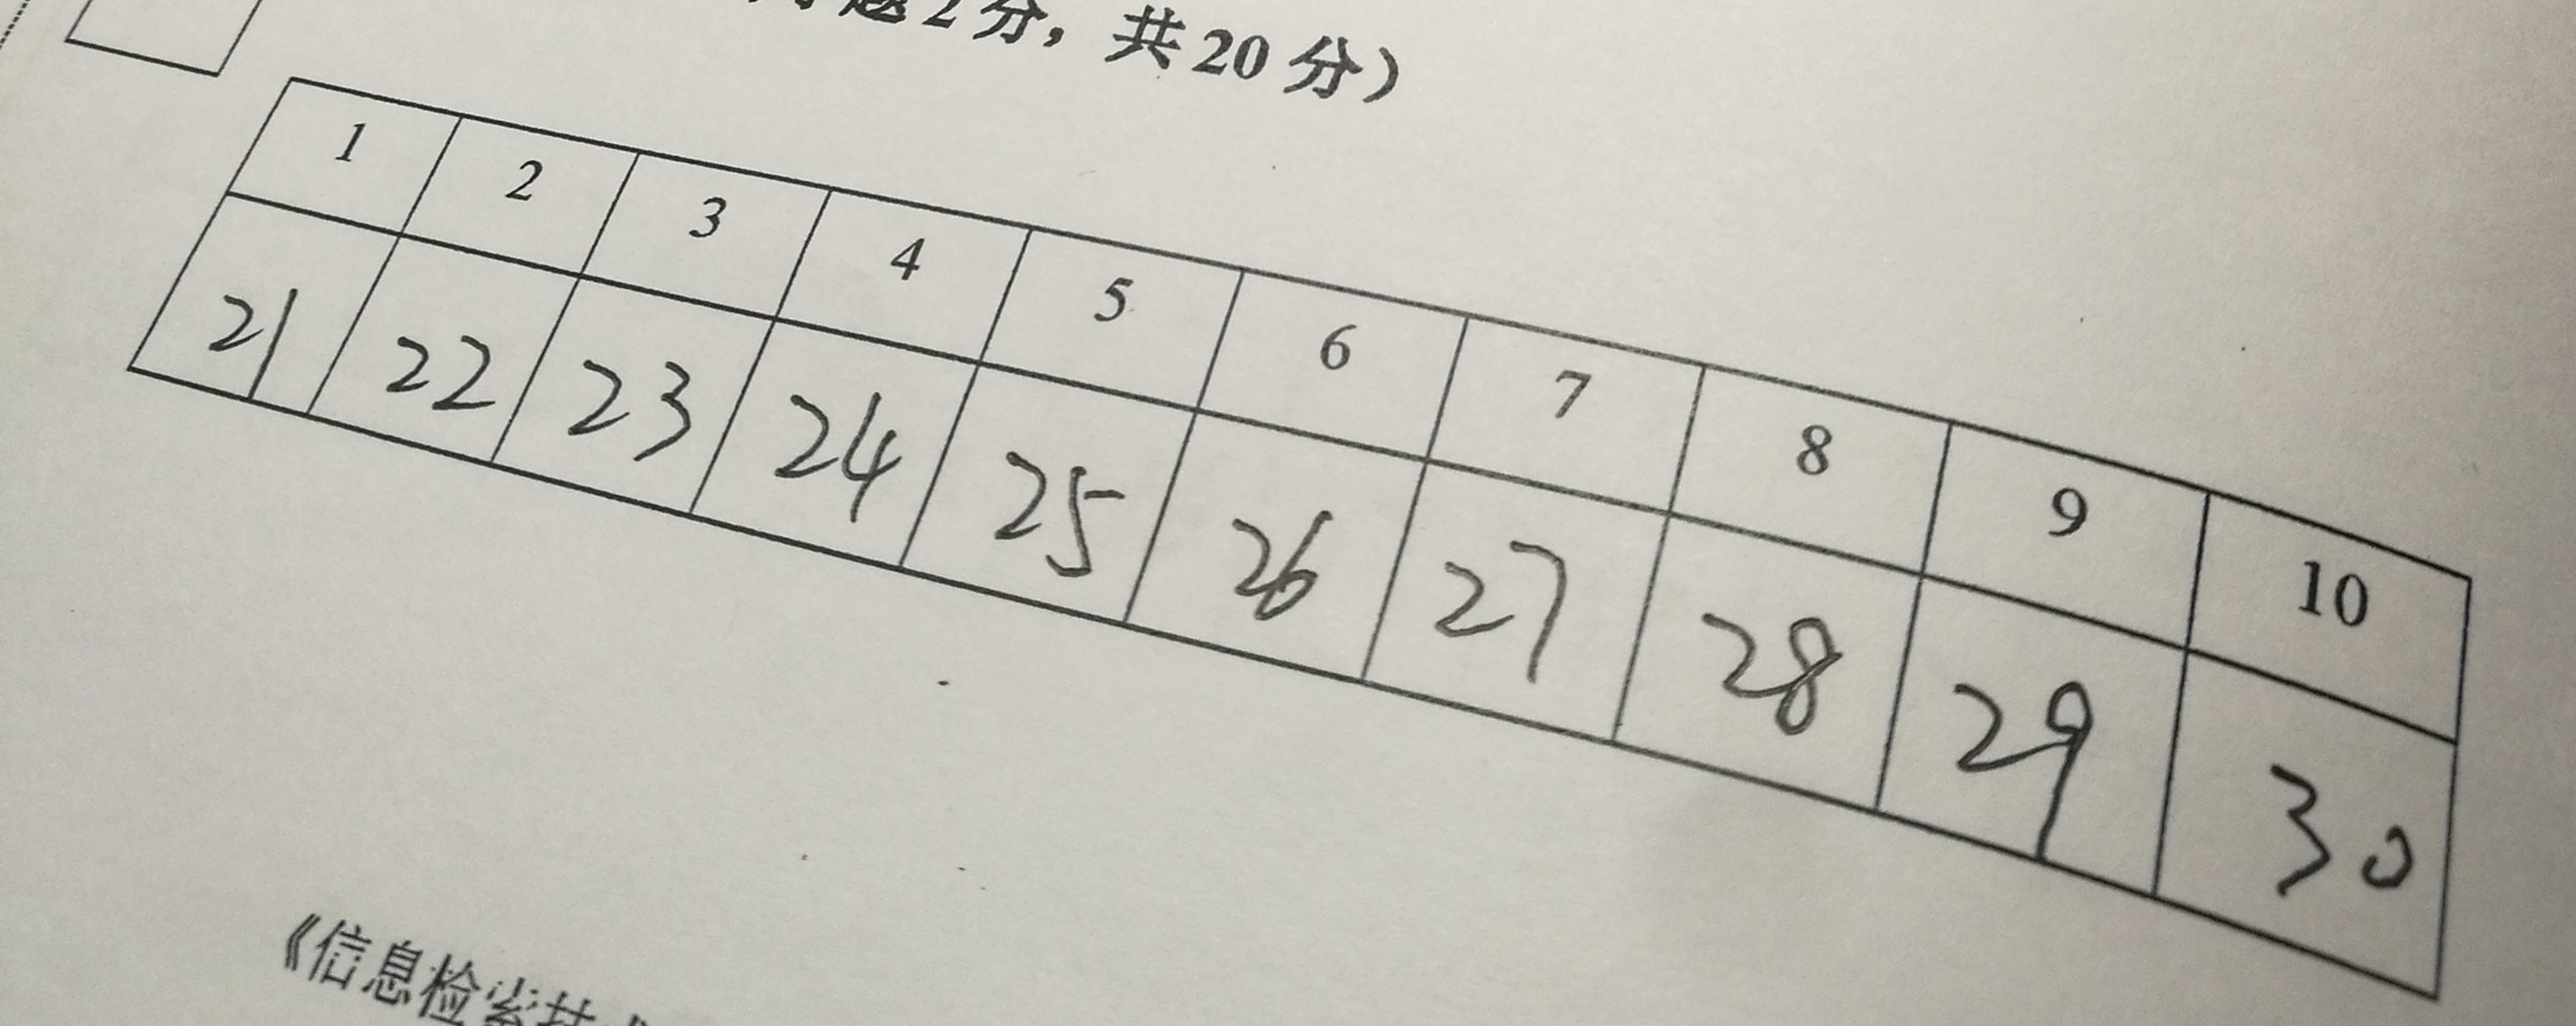 题2分，共20分）
1 2 3 4 5 6 7 8 9 10
21 22 23 24 25 26 27 28 29 30
《信息检索技